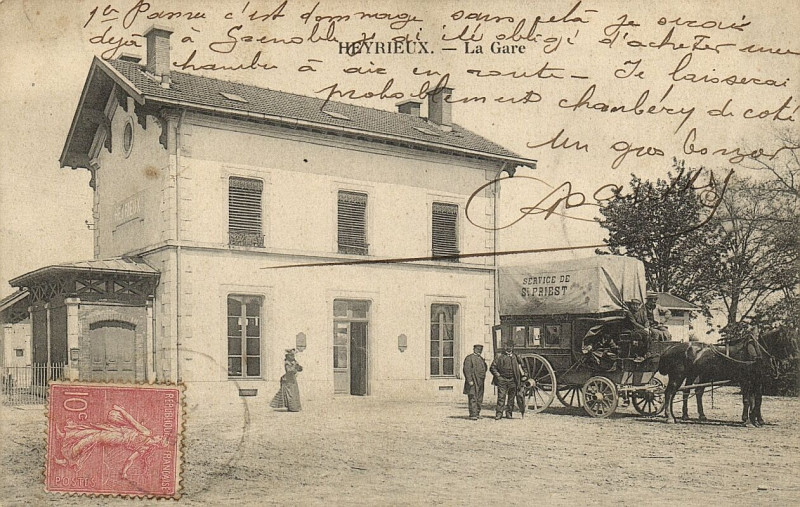 c'est dommage sans celà je serais
déjà à Grenoble, j'ai été obligé d'acheter une
HEYRIEUX. — La Gare
chambre à air en route — Je laisserai
probablement chambéry de coté
Un gros bonjour
SERVICE DE
St PRIEST
HEYRIEUX
10c
REPUBLIQUE FRANÇAISE
POSTES